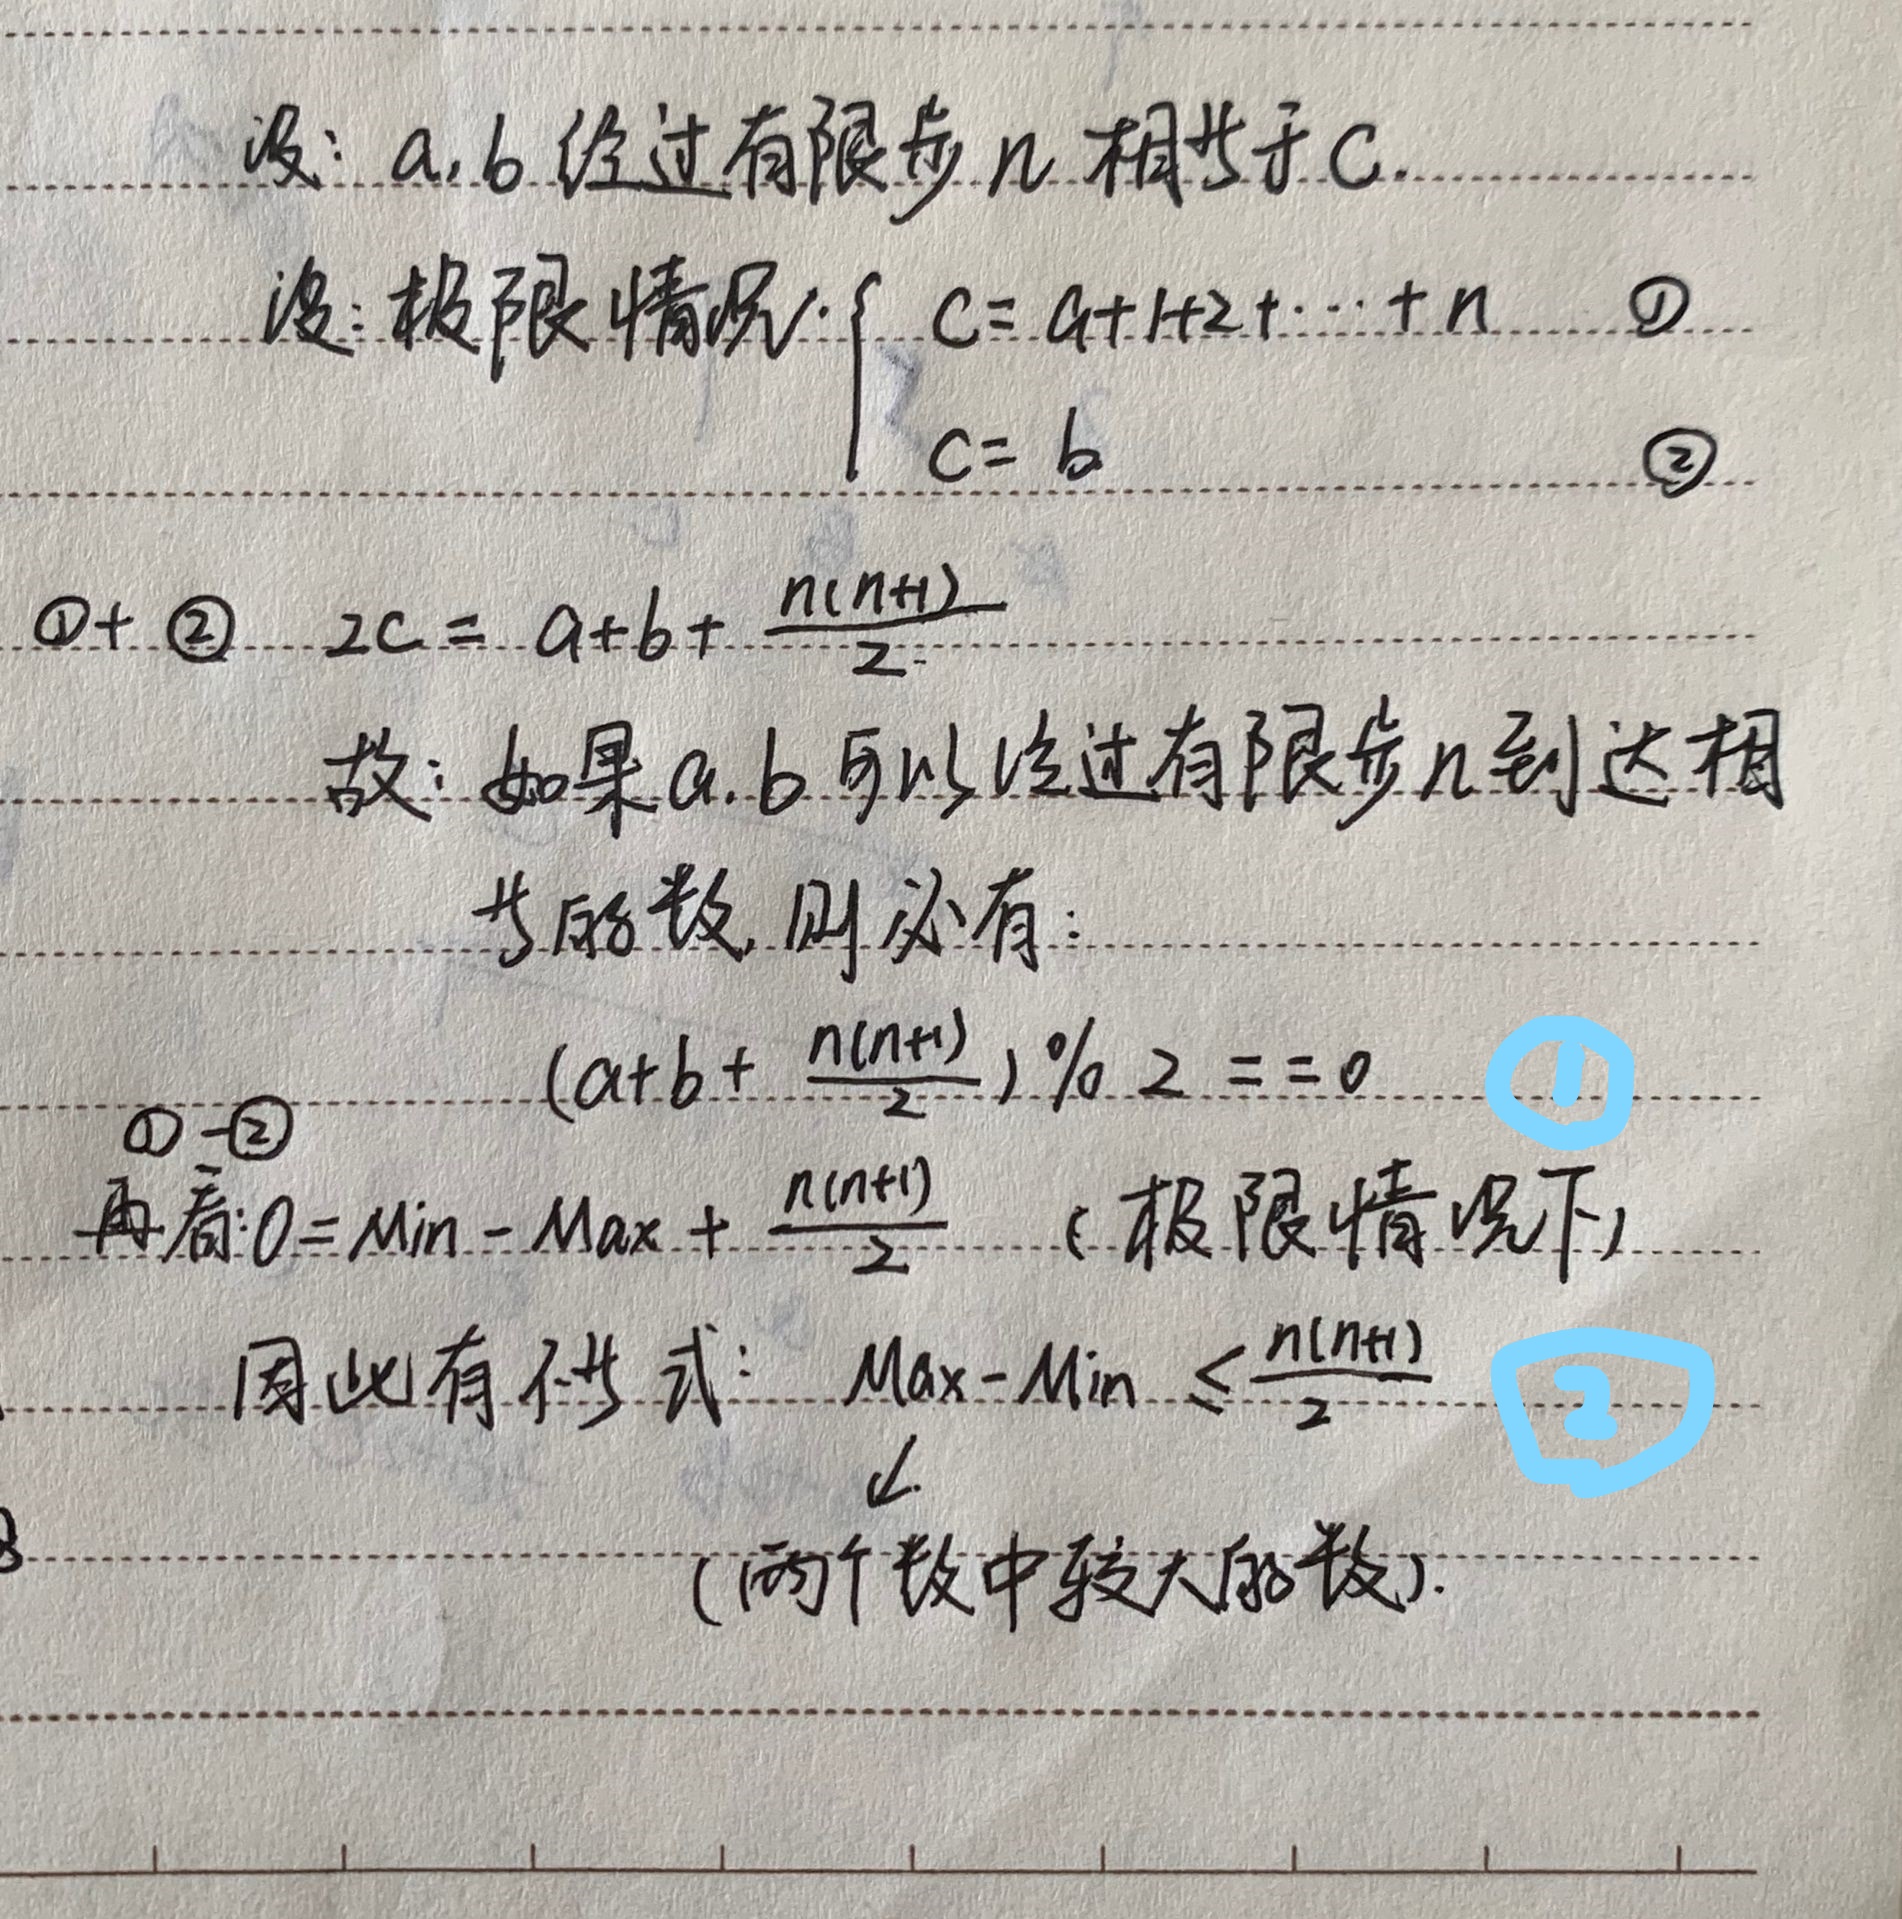 设: a.b 经过有限步 n 相当于 C.
设: 极限情况: { C = a+1+2+⋯+n ①
C = b ②
①+② 2C = a+b+ n(n+1)/2
故: 如果 a.b 可以经过有限步 n 到达相
当的数, 则必有:
(a+b+ n(n+1)/2) % 2 == 0 1
①-②
再看: 0 = Min - Max + n(n+1)/2 (极限情况下)
因此有不等式: Max - Min ≤ n(n+1)/2 2
↙
(两个数中较大的数).